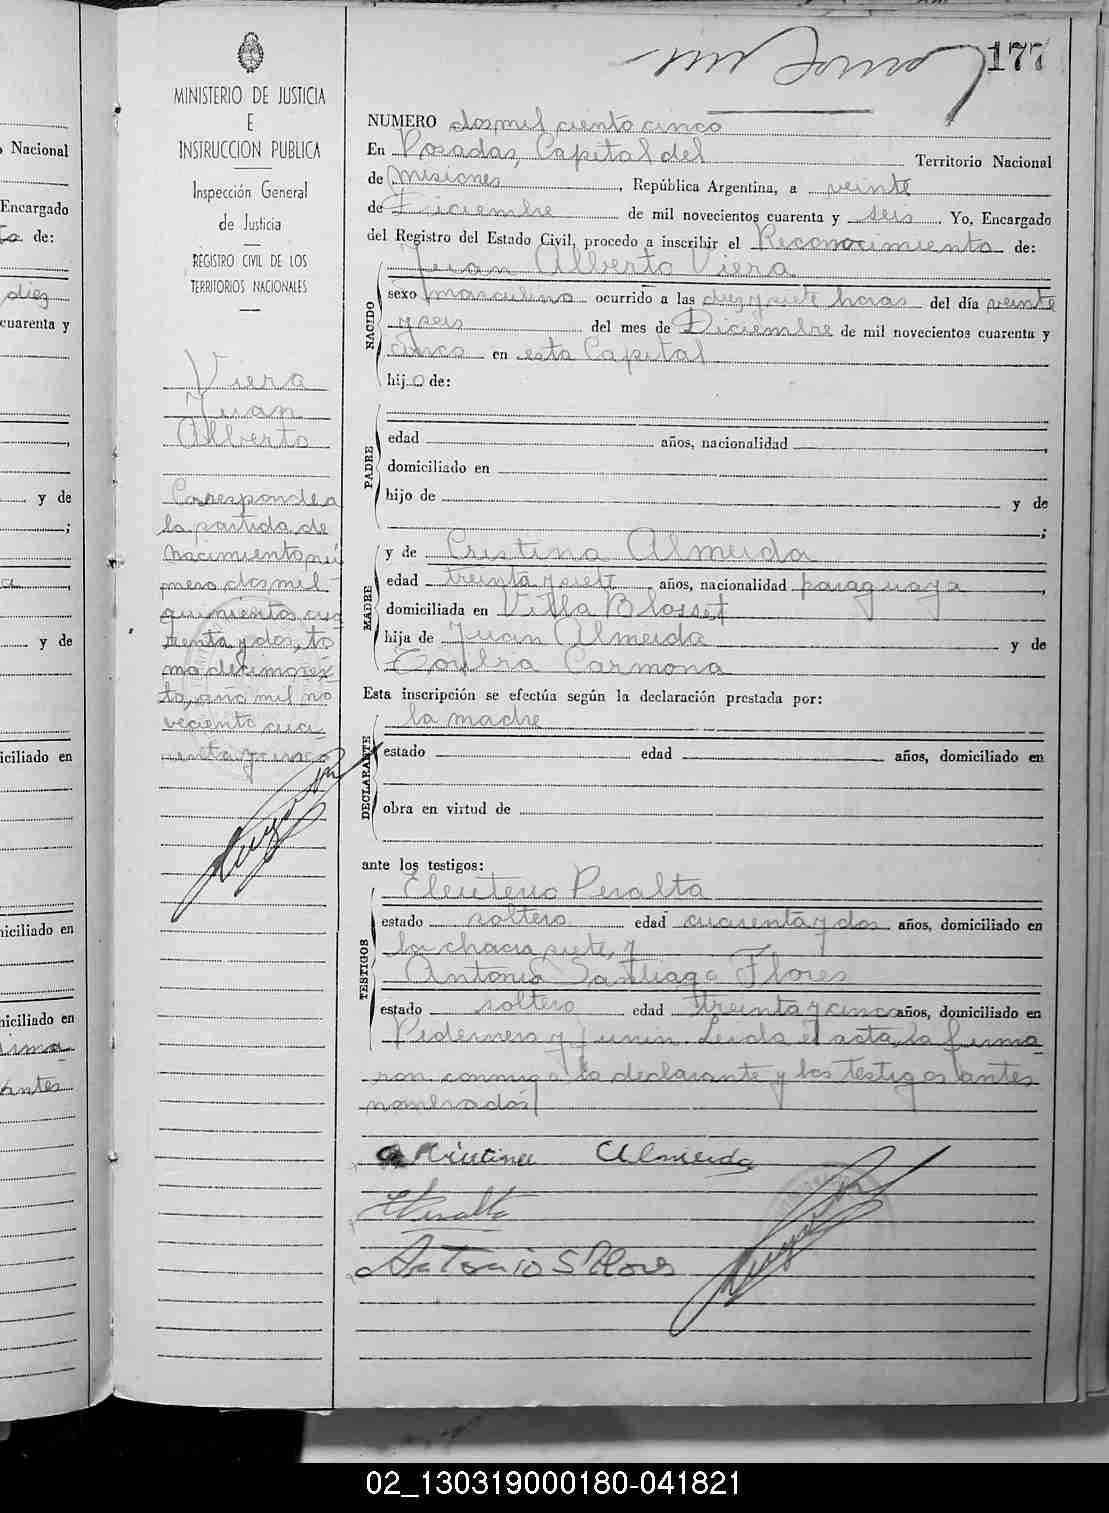 177
MINISTERIO DE JUSTICIA
E
INSTRUCCION PUBLICA
Inspección General
de Justicia
REGISTRO CIVIL DE LOS
TERRITORIOS NACIONALES
Viera
Juan
Alberto
Corresponde a
la partida de
nacimiento nú
mero dos mil
quinientos cua
renta y dos, to
mo decimosex
to, año mil no
veciento cua
renta y cinco
NUMERO dos mil ciento cinco
En Posadas, Capital del Territorio Nacional
de Misiones, República Argentina, a veinte
de Diciembre de mil novecientos cuarenta y seis. Yo, Encargado
del Registro del Estado Civil, procedo a inscribir el Reconocimiento de:
Juan Alberto Viera
NACIDO
sexo masculino ocurrido a las diez y siete horas del día veinte
y seis del mes de Diciembre de mil novecientos cuarenta y
cinco en esta Capital
hijo de:
PADRE
edad años, nacionalidad ,
domiciliado en
hijo de y de
;
MADRE
y de Cristina Almeida
edad treinta y siete años, nacionalidad paraguaya,
domiciliada en Villa Blosset
hija de Juan Almeida y de
Carmona
Esta inscripción se efectúa según la declaración prestada por:
la madre
DECLARANTE
estado edad años, domiciliado en
obra en virtud de
ante los testigos:
TESTIGOS
Eleuterio Peralta
estado soltero edad cuarenta y dos años, domiciliado en
la chacra siete, y
Antonio Santiago Flores
estado soltero edad treinta y cinco años, domiciliado en
Pedernera y Junin. Leída el acta, la firma
ron conmigo la declarante y los testigos antes
nombrados
Cristina Almeida
EPeralta
Antonio S Flores
o Nacional
Encargado
to de:
diez
cuarenta y
y de
;
a
y de
iciliado en
niciliado en
niciliado en
firma
antes
02_130319000180-041821